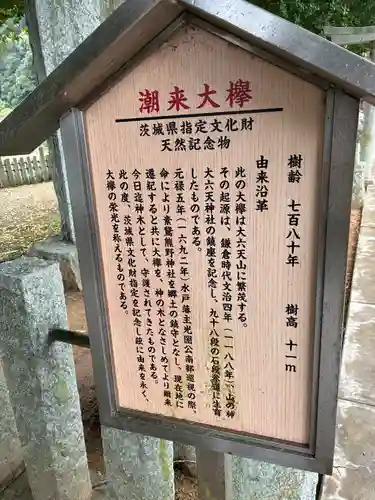 潮来大欅
茨城県指定文化財
天然記念物
樹齢 七百八十年 樹高 十一m
由来沿革
この大欅は大六天山に繁茂する。
その起源は、鎌倉時代文治四年(一一八八年)、山の神
大六天神社の鎮座を記念し、九十八段の石段参道に生育
したものです。
元禄五年(一六九二年)水戸藩主光圀公南郡巡視の際、
命により素鵞熊野神社を郷土の鎮守となし、現在地に
遷記すると共に大欅を、神の木となさしめてより爾来
今日迄神木として、守護されてきたものである。
此の度、茨城県文化財指定を記念し玆に由来を永く、
大欅の栄光を称えるものである。